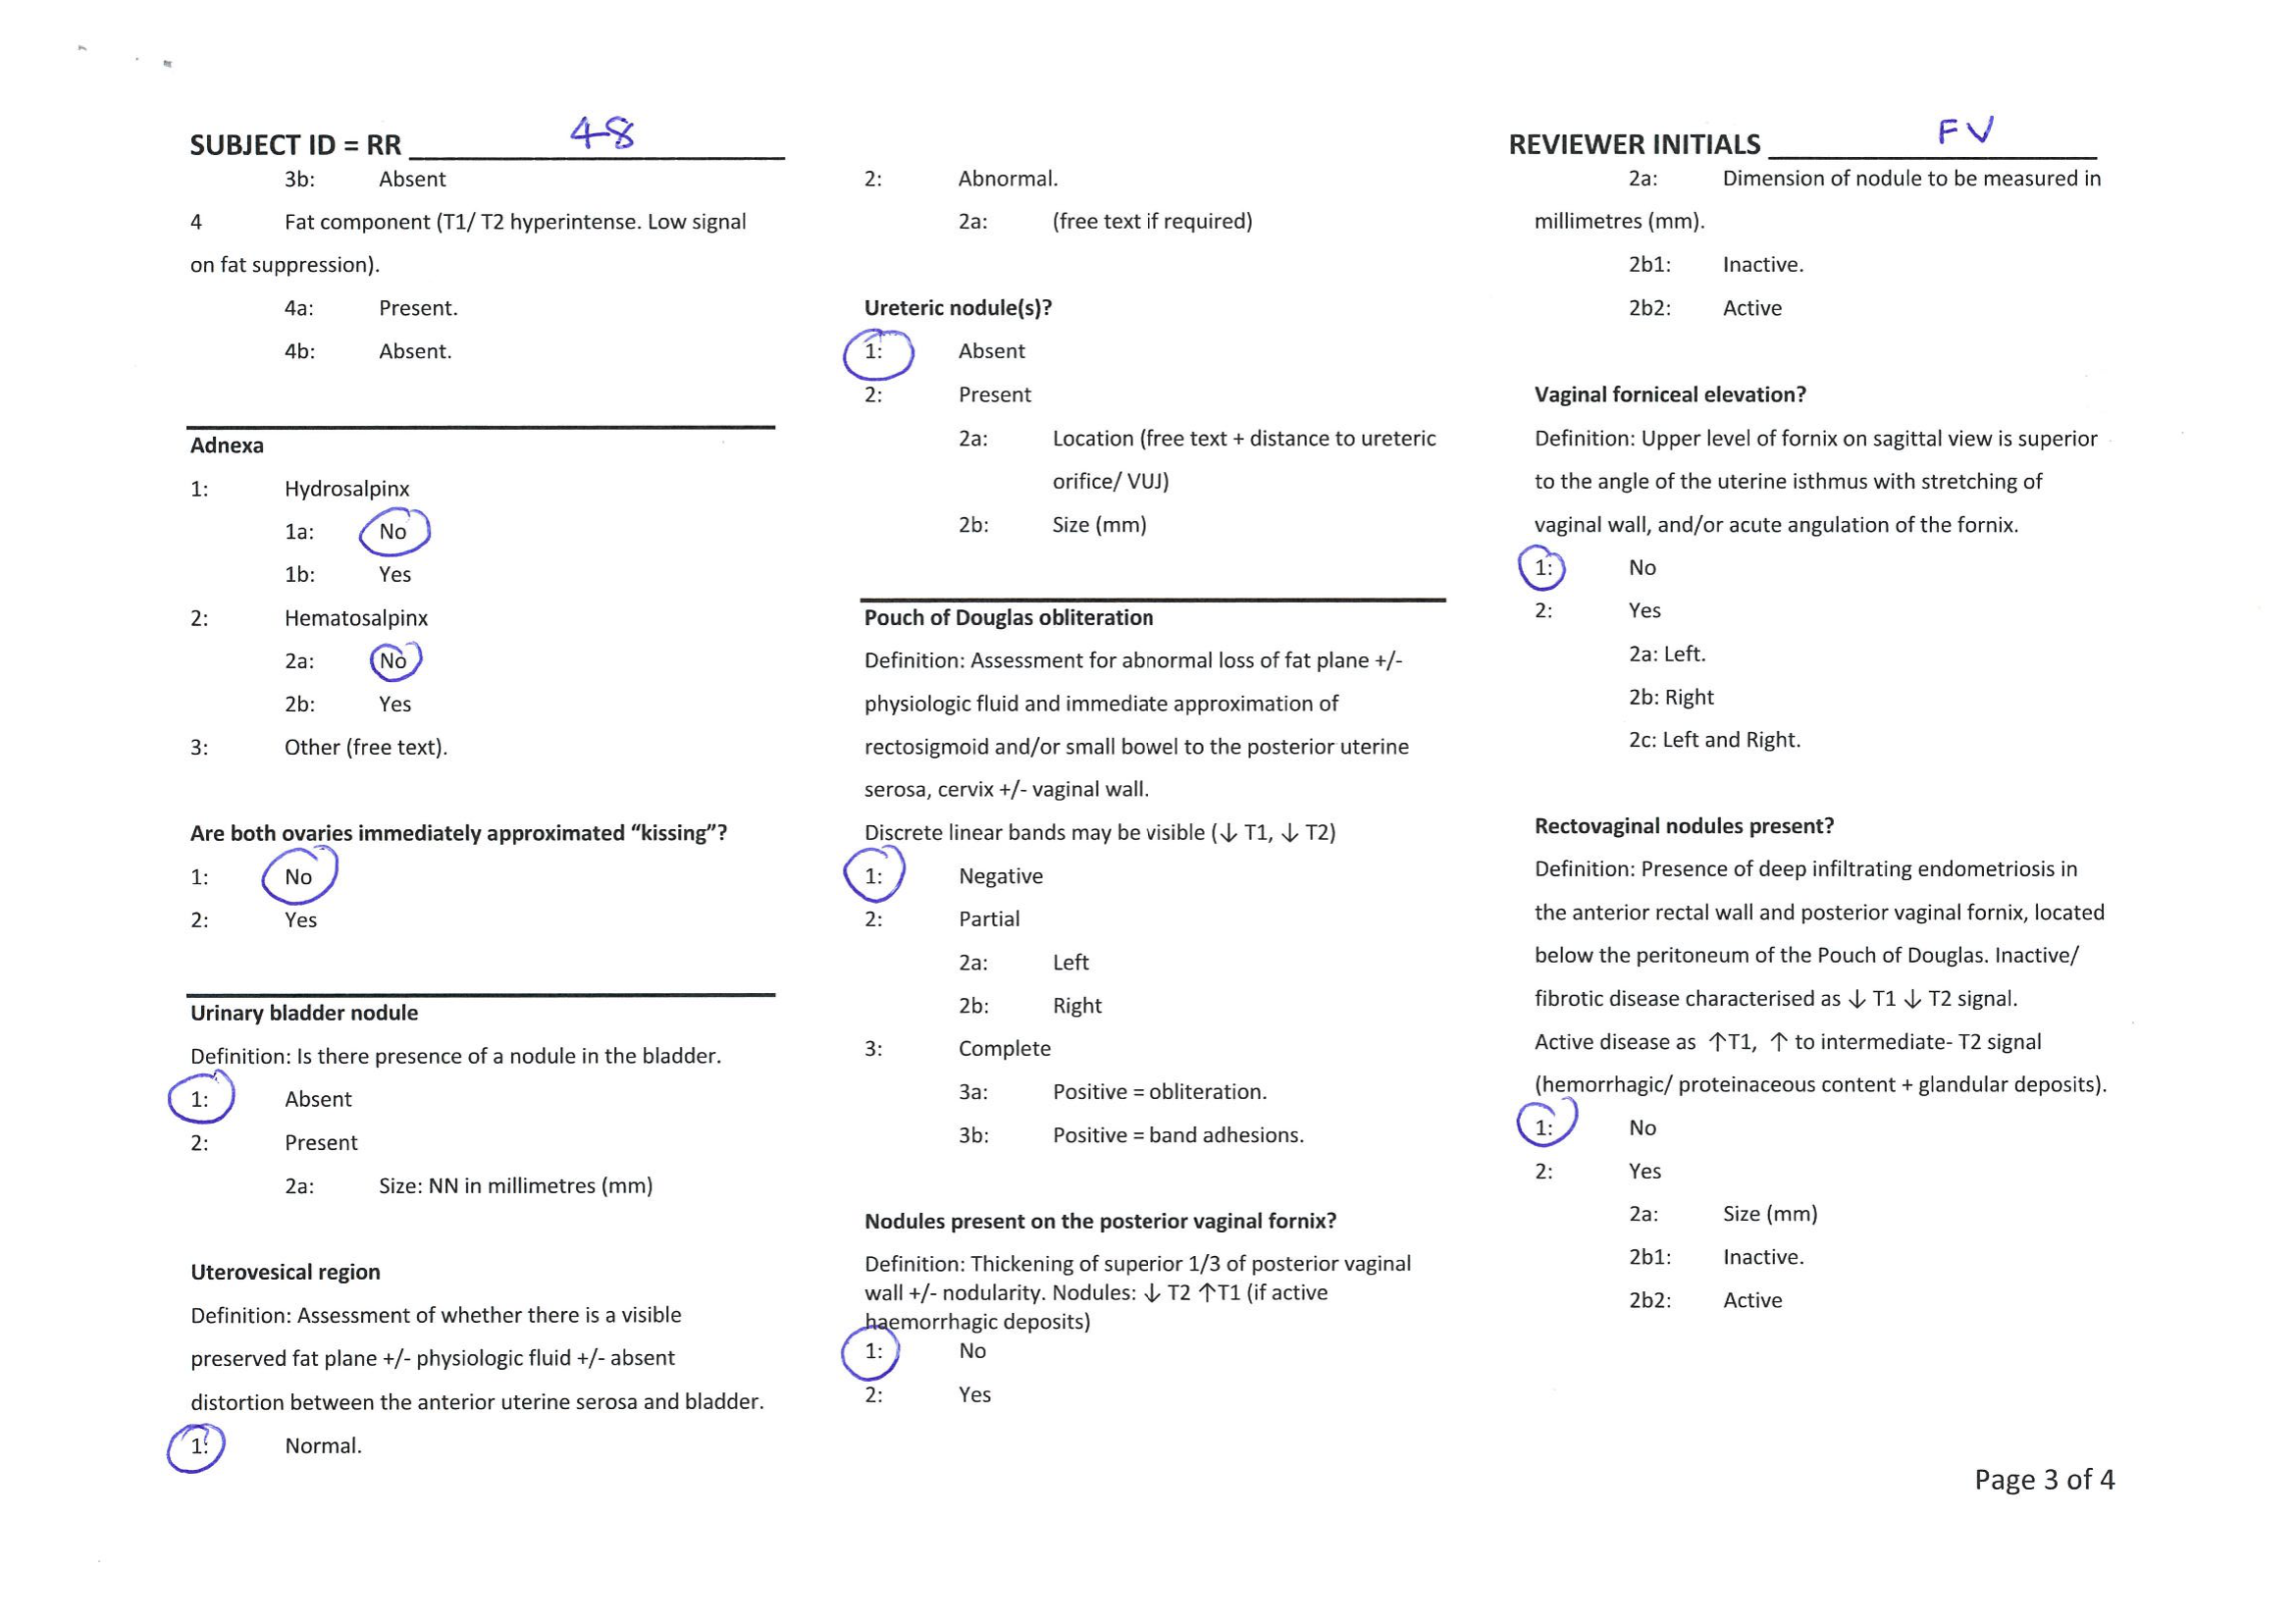 SUBJECT ID = RR 48
REVIEWER INITIALS FV
3b: Absent
4 Fat component (T1/ T2 hyperintense. Low signal
on fat suppression).
4a: Present.
4b: Absent.
Adnexa
1: Hydrosalpinx
1a: No
1b: Yes
2: Hematosalpinx
2a: No
2b: Yes
3: Other (free text).
Are both ovaries immediately approximated “kissing”?
1: No
2: Yes
Urinary bladder nodule
Definition: Is there presence of a nodule in the bladder.
1: Absent
2: Present
2a: Size: NN in millimetres (mm)
Uterovesical region
Definition: Assessment of whether there is a visible
preserved fat plane +/- physiologic fluid +/- absent
distortion between the anterior uterine serosa and bladder.
1: Normal.
2: Abnormal.
2a: (free text if required)
Ureteric nodule(s)?
1: Absent
2: Present
2a: Location (free text + distance to ureteric
orifice/ VUJ)
2b: Size (mm)
Pouch of Douglas obliteration
Definition: Assessment for abnormal loss of fat plane +/-
physiologic fluid and immediate approximation of
rectosigmoid and/or small bowel to the posterior uterine
serosa, cervix +/- vaginal wall.
Discrete linear bands may be visible (↓ T1, ↓ T2)
1: Negative
2: Partial
2a: Left
2b: Right
3: Complete
3a: Positive = obliteration.
3b: Positive = band adhesions.
Nodules present on the posterior vaginal fornix?
Definition: Thickening of superior 1/3 of posterior vaginal
wall +/- nodularity. Nodules: ↓ T2 ↑T1 (if active
haemorrhagic deposits)
1: No
2: Yes
2a: Dimension of nodule to be measured in
millimetres (mm).
2b1: Inactive.
2b2: Active
Vaginal forniceal elevation?
Definition: Upper level of fornix on sagittal view is superior
to the angle of the uterine isthmus with stretching of
vaginal wall, and/or acute angulation of the fornix.
1: No
2: Yes
2a: Left.
2b: Right
2c: Left and Right.
Rectovaginal nodules present?
Definition: Presence of deep infiltrating endometriosis in
the anterior rectal wall and posterior vaginal fornix, located
below the peritoneum of the Pouch of Douglas. Inactive/
fibrotic disease characterised as ↓ T1 ↓ T2 signal.
Active disease as ↑T1, ↑ to intermediate- T2 signal
(hemorrhagic/ proteinaceous content + glandular deposits).
1: No
2: Yes
2a: Size (mm)
2b1: Inactive.
2b2: Active
Page 3 of 4